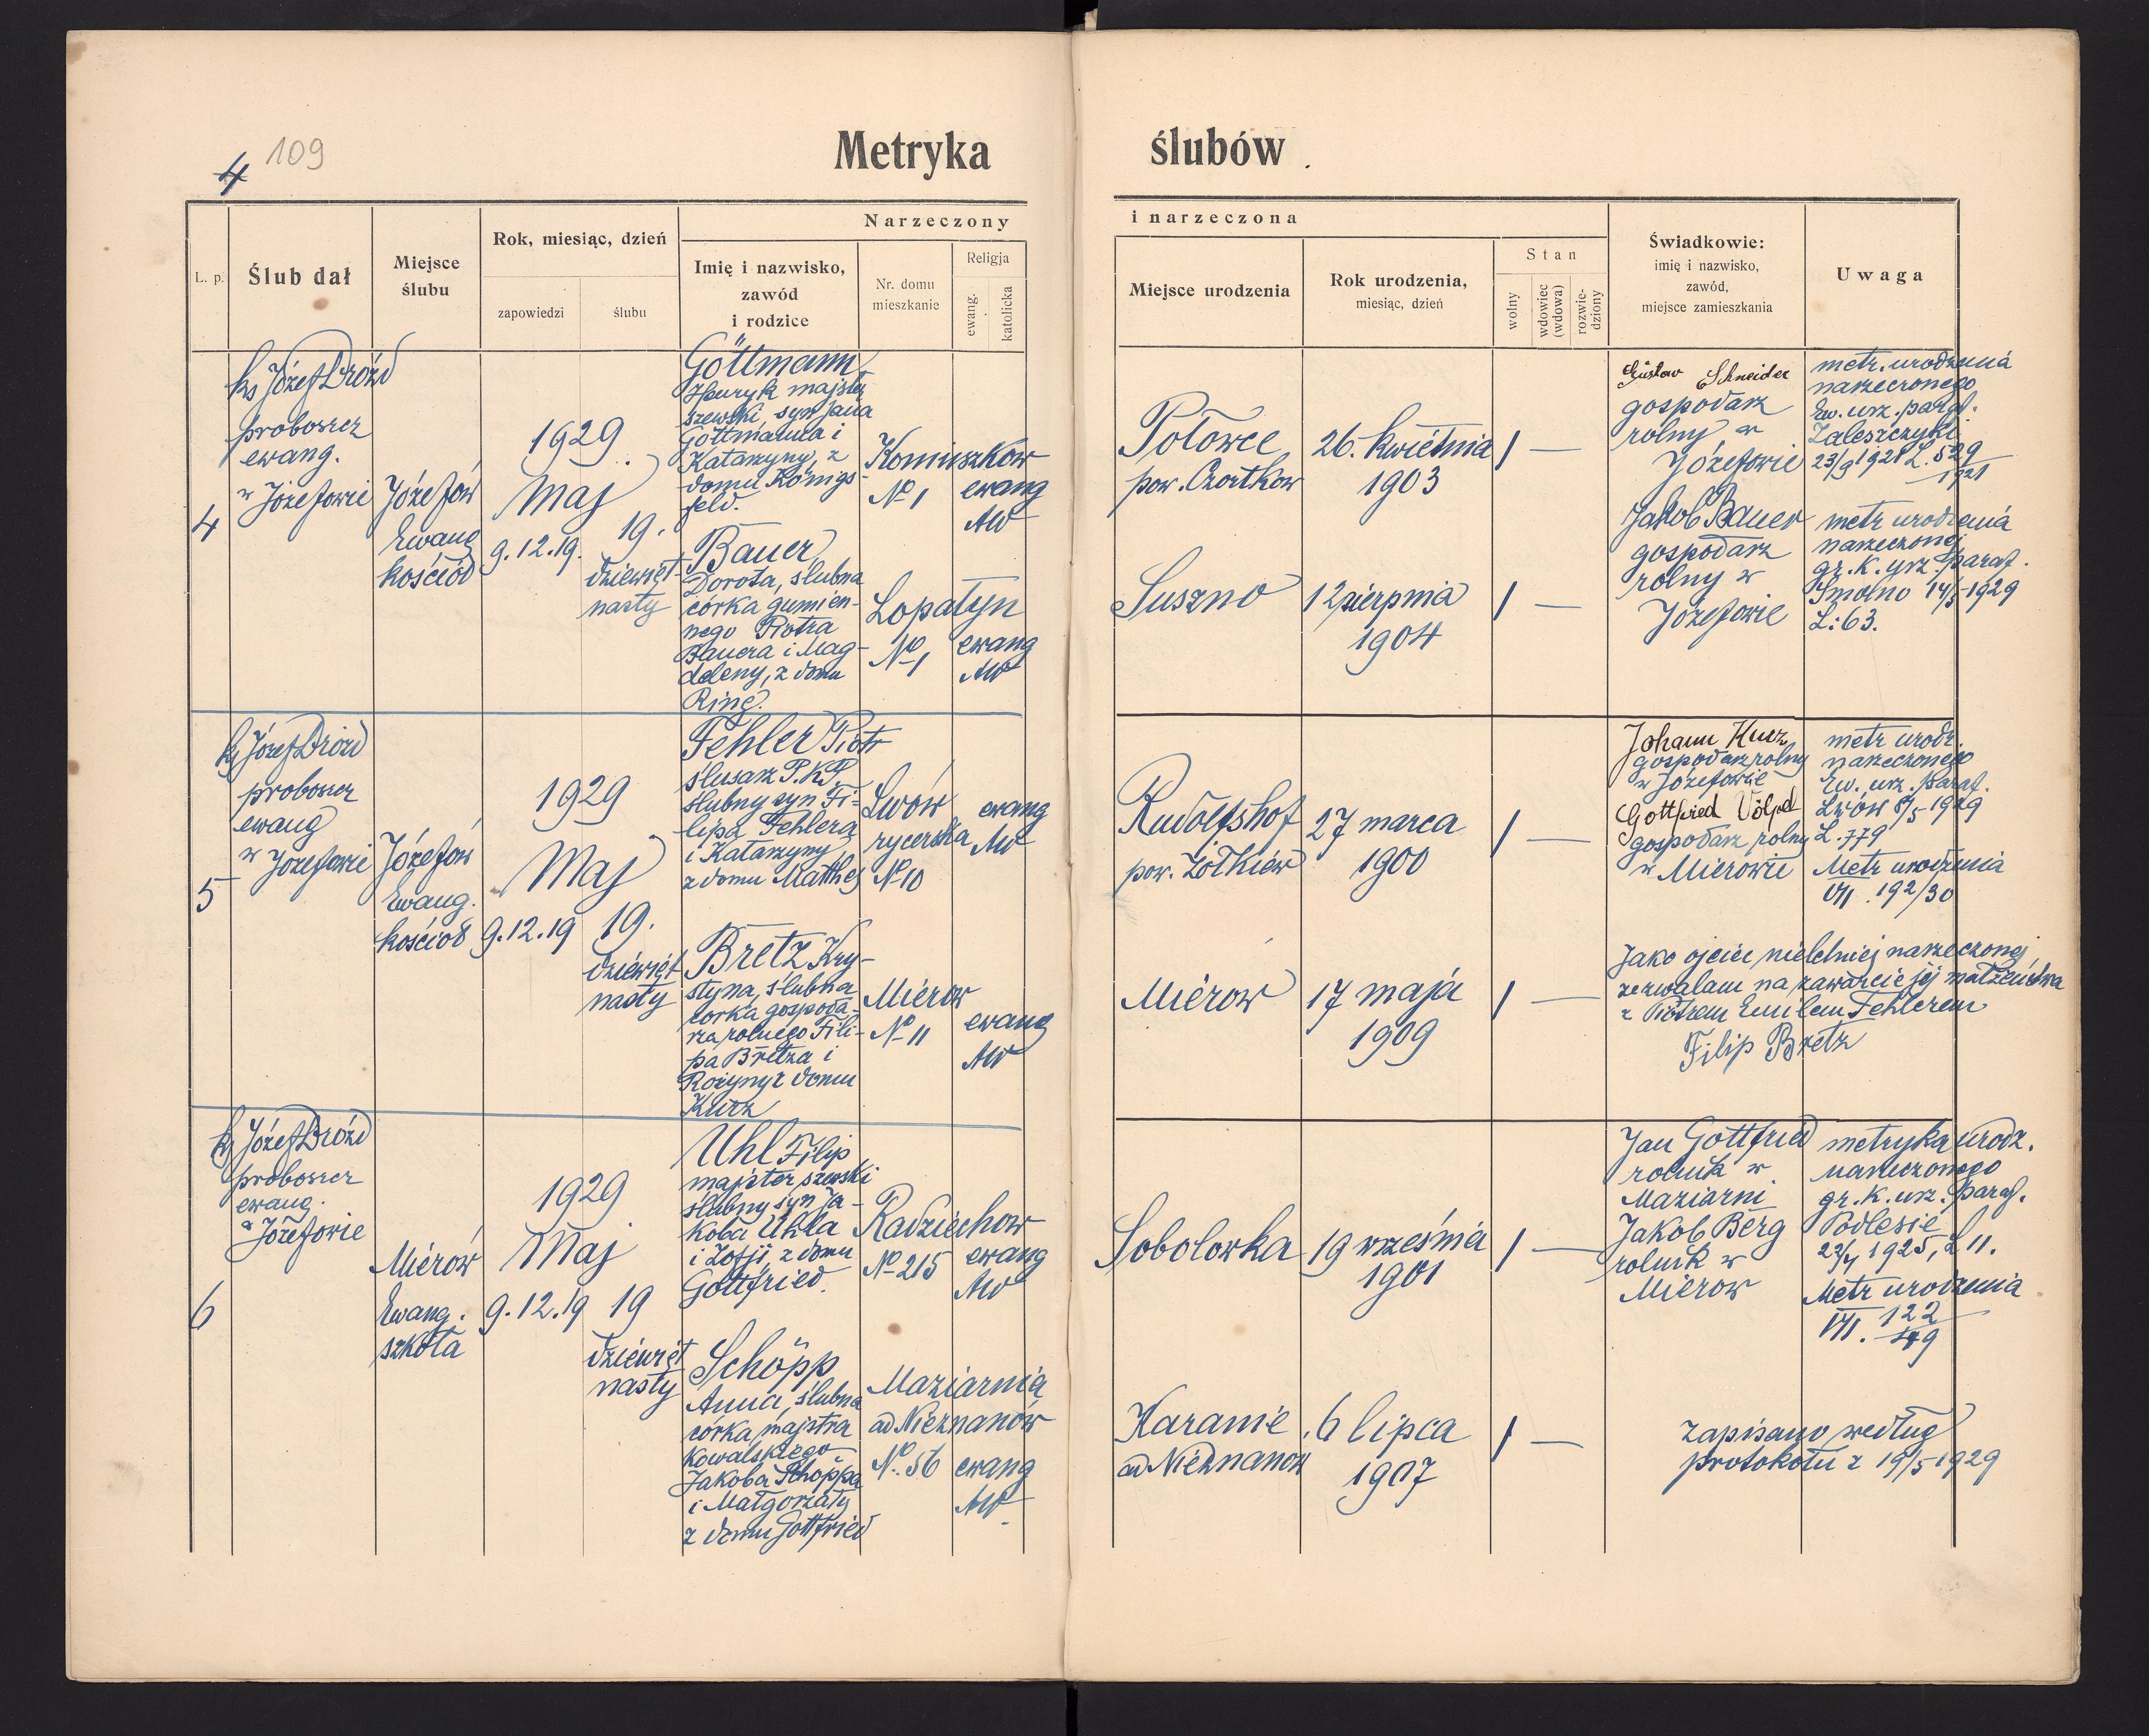 4 109
Metryka ślubów
L. p.
Ślub dał
Miejsce
ślubu
Rok, miesiąc, dzień
zapowiedzi
ślubu
Narzeczony
Imię i nazwisko,
zawód
i rodzice
Nr. domu
mieszkanie
Religja
ewang.
katolicka
i narzeczona
Miejsce urodzenia
Rok urodzenia,
miesiąc, dzień
Stan
wolny
wdowiec
(wdowa)
rozwie-
dziony
Świadkowie:
imię i nazwisko,
zawód,
miejsce zamieszkania
Uwaga
4
ks Józef Dróżd
proboszcz
ewang.
w Józefowie
Józefów
Ewang
kościół
1929
Maj
9.12.19.
19.
dziewięt-
nasty
Göttmann
Henryk majster
szewski, syn Jana
Göttmanna i
Katarzyny, z
domu Königs-
feld.
Koniuszków
No 1
ewang
AW
Bauer
Dorota, ślubna
córka gumien-
nego Piotra
Bauera i Mag-
daleny, z domu
Ring.
Lopatyn
No 1
ewang
AW
Połowce
pow. Czortków
26. kwietnia
1903
Suszno
12 sierpnia
1904
Gustav Schneider
gospodarz
rolny w
Józefowie
Jakob Bauer
gospodarz
rolny w
Józefowie
metr. urodzenia
narzeczonego
Ew. urz. paraf.
Zaleszczyki
23/9 1921 L. 529
1921
metr urodzenia
narzeczonej
gr. k. urz. paraf.
Smolno 14/5 1929
L: 63.
5
ks Józef Dróżd
proboszcz
ewang
w Józefowie
Józefów
Ewang.
kościół
1929
Maj
9.12.19
19.
dziewięt
nasty
Fehler Piotr
ślusarz P.K.P.
ślubny syn Fi-
lipa Fehlera
i Katarzyny
z domu Matthes
Lwów
rycerska
No 10
ewang
AW
Bretz Kry-
styna, ślubna
córka gospoda-
rza rolnego Fili-
pa Bretza i
Rozyny z domu
Kurz
Mierow
No 11
ewang
AW
Rudolfshof
pow. Żółkiew
27 marca
1900
Mierow
17 maja
1909
Johann Kurz
gospodarz rolny
w Józefowie
Gottfried Völpel
gospodarz rolny
w Mierowie
metr urodz.
narzeczonego
Ew. urz. paraf.
Lwów 8/5 1929
L. 779
Metr urodzenia
VII. 192/30
Jako ojciec nieletniej narzeczonej
zezwalam na zawarcie jej małżeństwa
z Piotrem Emilem Fehlerem
Filip Bretz
6
ks Józef Dróżd
proboszcz
ewang.
w Józefowie
Mierów
Ewang.
szkoła
1929
Maj
9.12.19
19
dziewięt
nasty
Uhl Filip
majster szewski
ślubny syn Ja-
koba Uhla
i Zofji, z domu
Gottfried.
Radziechow
No 215
ewang
AW
Schöpp
Anna, ślubna
córka majstra
kowalskiego
Jakoba Schöppa
i Małgorzaty
z domu Gottfried
Maziarnia
ad Nieznanów
No 56
ewang
AW
Sobolowka
19 września
1901
Haranie
ad Nieznanow
6 lipca
1907
Jan Gottfried
rolnik w
Maziarni
Jakob Berg
rolnik w
Mierow
metryka urodz.
narzeczonego
gr. k. urz. paraf.
Podlesie
1925, L 11.
Metr urodzenia
VII. 122
zapisano według
protokołu z 19/5 1929